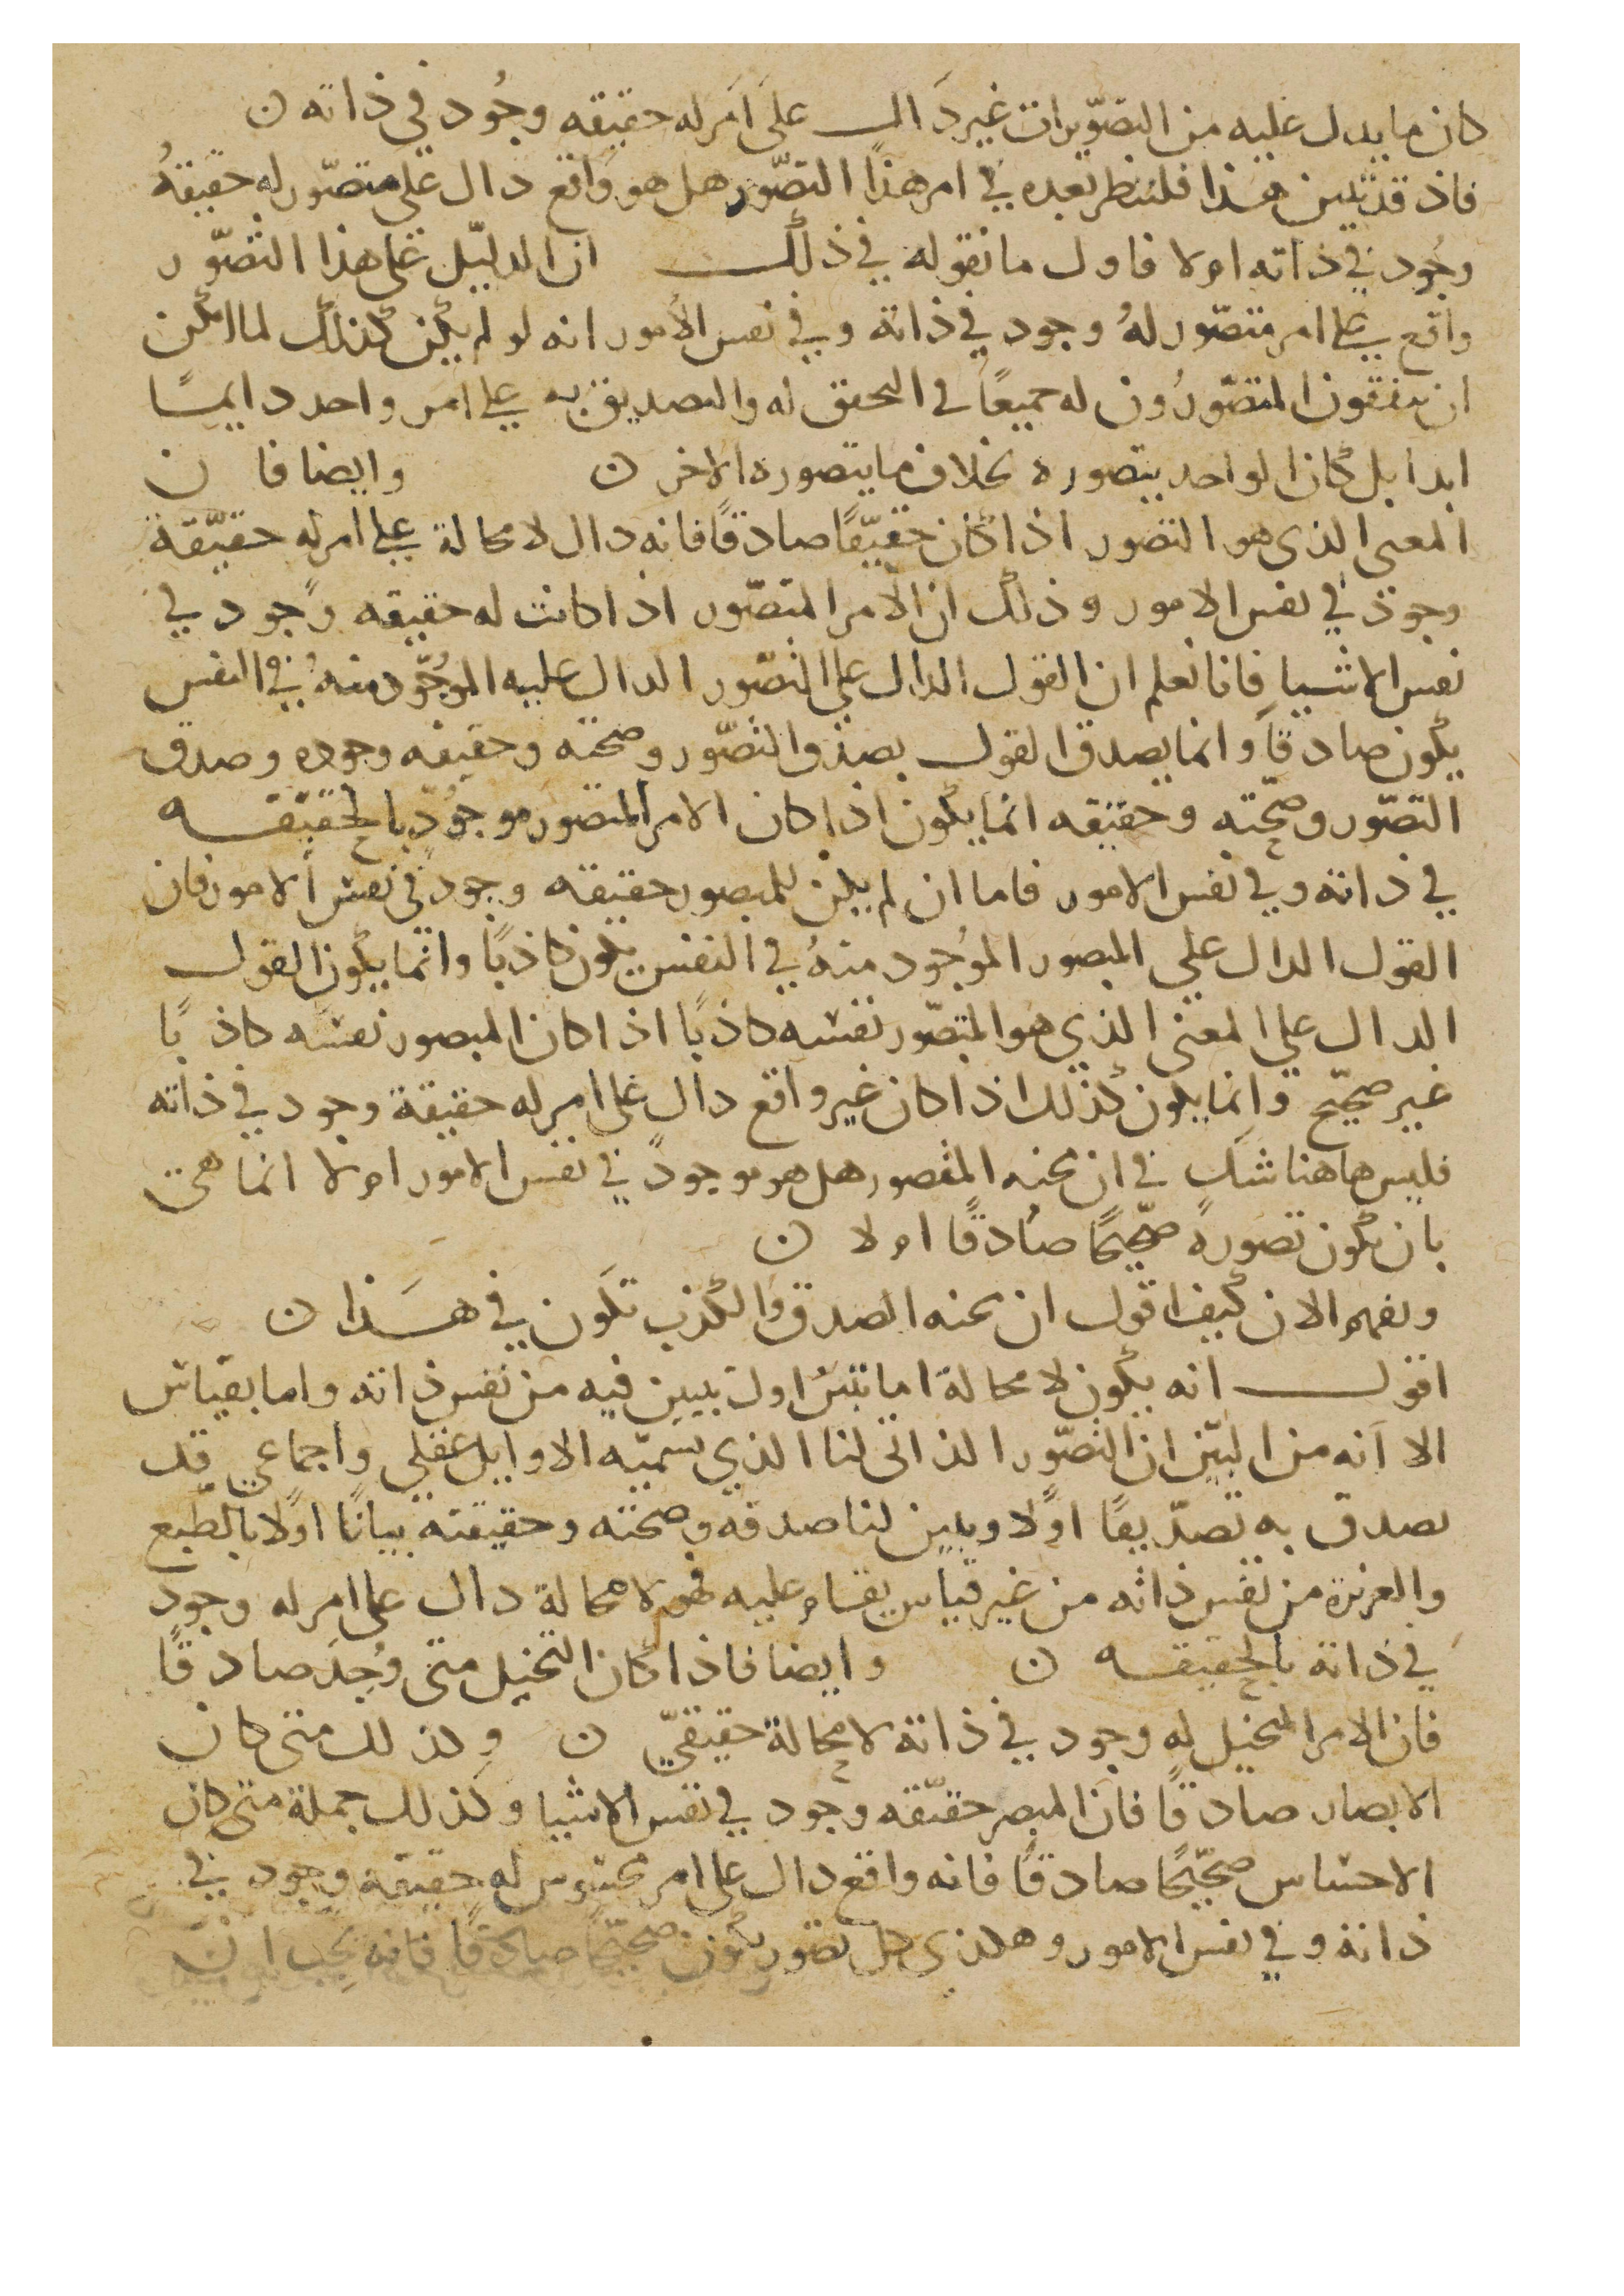 كان ما يدل عليه من التصويرات غير دال على امر له حقيقه وجود في ذاته ن
فاذ قد تبين هذا فلننظر بعده في امر هذا التصور هل هو واقع دال على متصور له حقيقة
وجود في ذاته ام لا فاول ما نقوله في ذلك ان الدليل على هذا التصور
واقع على امر متصور له وجود في ذاته وفي نفس الامور انه لو لم يكن كذلك لما امكن
ان يتفقون المتصورون له جميعًا في التحقق له والتصديق به على امر واحد دايمًا
ابدا بل كان الواحد يتصوره بخلاف ما يتصوره الاخر ن وايضا فا ن
المعنى الذي هو التصور اذا كان حقيقًا صادقًا فانه دال لا محالة على امر له حقيقة
وجود في نفس الامور وذلك ان الامر المتصور اذا كانت له حقيقه وجود في
نفس الاشيا فانا نعلم ان القول الدال على التصور الدال عليه الموجود منه في النفس
يكون صادقًا وانما يصدق القول بصدق التصور وصحته وحقيقه وجوده وصدق
التصور وصحته وحقيقه انما يكون اذا كان الامر المتصور موجود بالحقيقه
في ذاته وفي نفس الامور فاما ان لم يكن للمتصور حقيقه وجود في نفس الامور فان
القول الدال على المتصور الموجود منه في النفس يكون كاذبًا وانما يكون القول
الدال على المعنى الذي هو المتصور نفسه كاذبًا اذا كان المتصور نفسه كاذبًا
غير صحيح وانما يكون كذلك اذا كان غير واقع دال على امر له حقيقة وجود في ذاته
فليس هاهنا شك في ان محنه المتصور هل هو موجود في نفس الامور ام لا انما هي
بان يكون تصوره صحيحًا صادقًا ام لا ن
ونفهم الان كيف اقول ان محنه الصدق والكذب تكون في هذا ن
اقول انه يكون لا محالة اما بتبين اول يبين فيه من نفس ذاته واما بقياس
الا انه من البين ان التصور الذاتي لنا الذي تسميه الاوايل عقلي واجماعي قد
نصدق به تصديقًا اولا ويبين لنا صدقه وصحته وحقيقته بيانًا اولا بالطبع
والغريزة من نفس ذاته من غير قياس يقام عليه فهو لا محالة دال على امر له وجود
في ذاته بالحقيقه ن وايضا فاذا كان التخيل متى وجد صادقًا
فان الامر المخيل له وجود في ذاته لا محالة حقيقي ن وكذلك متى كان
الابصار صادقًا فان المبصر حقيقه وجود في نفس الاشيا وكذلك جملة متى كان
الاحساس صحيحًا صادقًا فانه واقع دال على امر محسوس له حقيقه وجود في
ذاته وفي نفس الامور وهكذى كل تصور يكون صحيحًا صادقًا فانه يجب ان